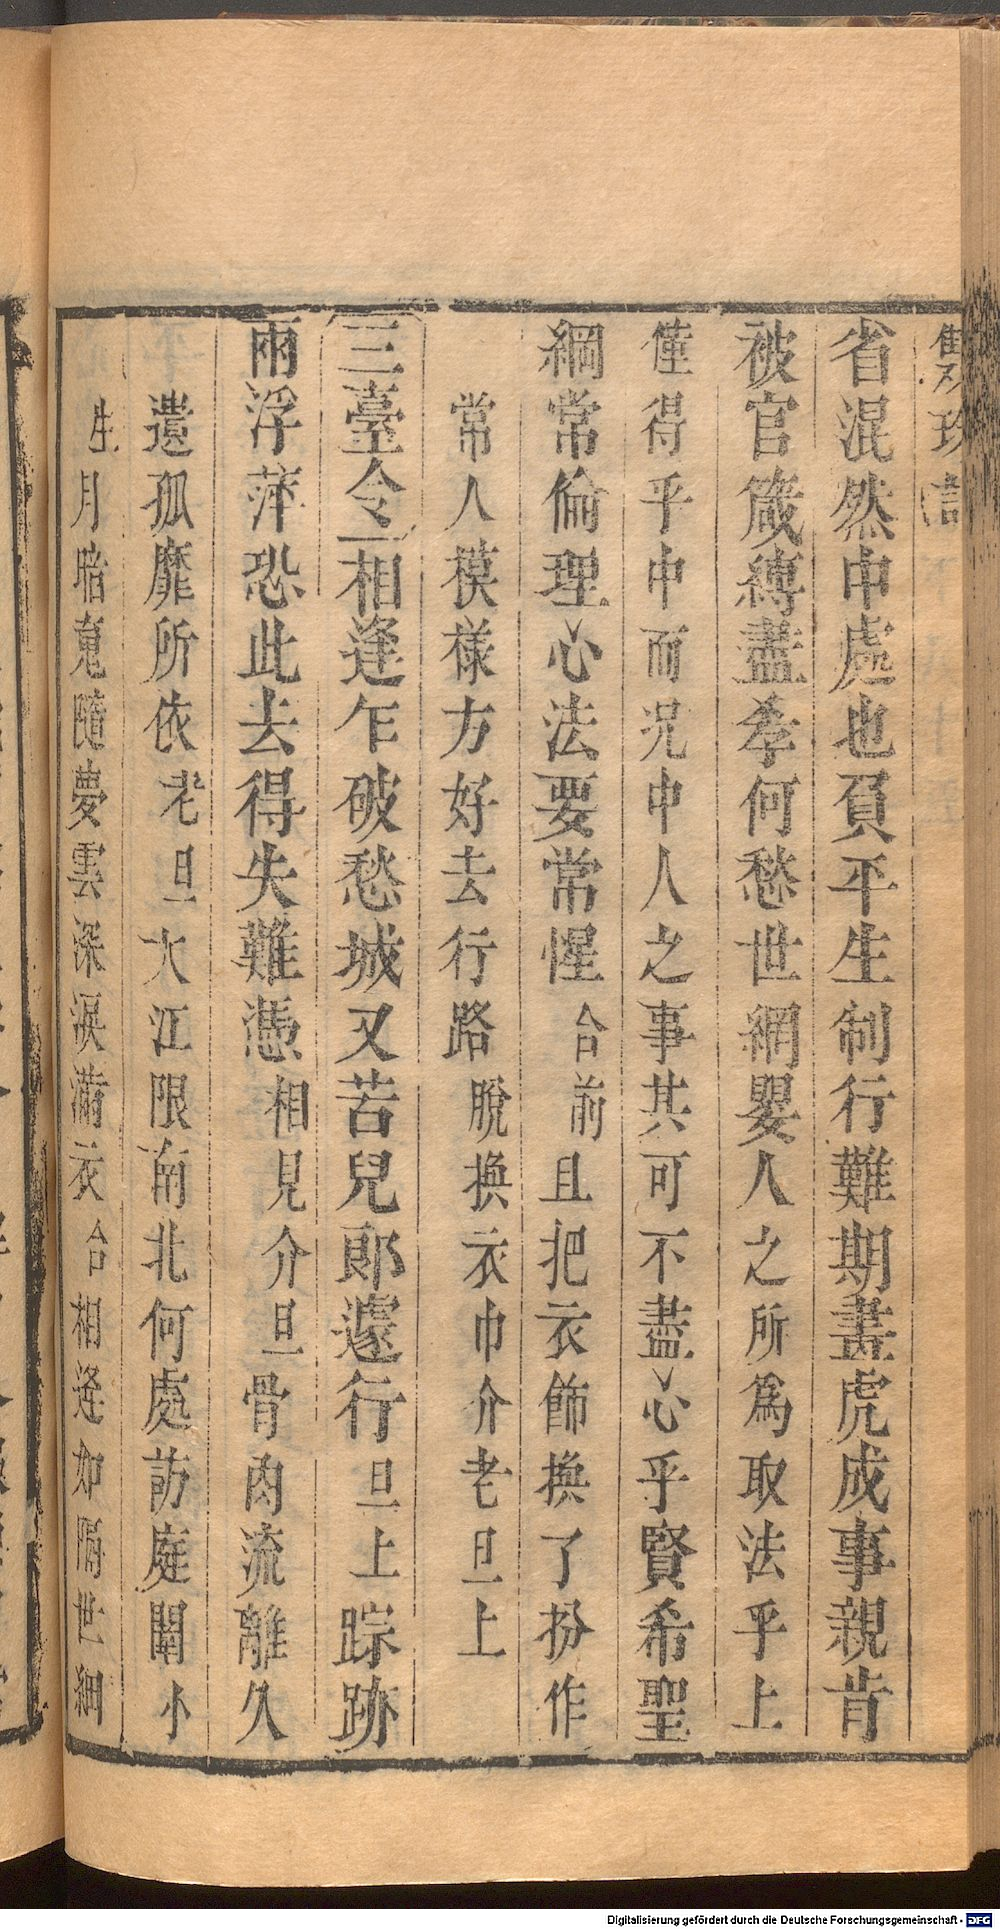 雙珍記
省混然中處也負平生制行難期畫虎成事親肯
被官箴縛盡孝何愁世網嬰人之所爲取法乎上
僅得乎中而况中人之事其可不盡心乎賢希聖
綱常倫理心法要常惺合前且把衣飾換了扮作
常人模樣方好去行路脫換衣巾介老旦上
三臺令相逢乍破愁城又苦兒郎遽行旦上踪跡
雨浮萍恐此去得失難憑相見介旦骨肉流離久
遺孤靡所依老旦大江限南北何處訪庭闈小
生月暗䰟隨夢雲深淚滿衣合相逢如隔世細
Digitalisierung gefördert durch die Deutsche Forschungsgemeinschaft - DFG